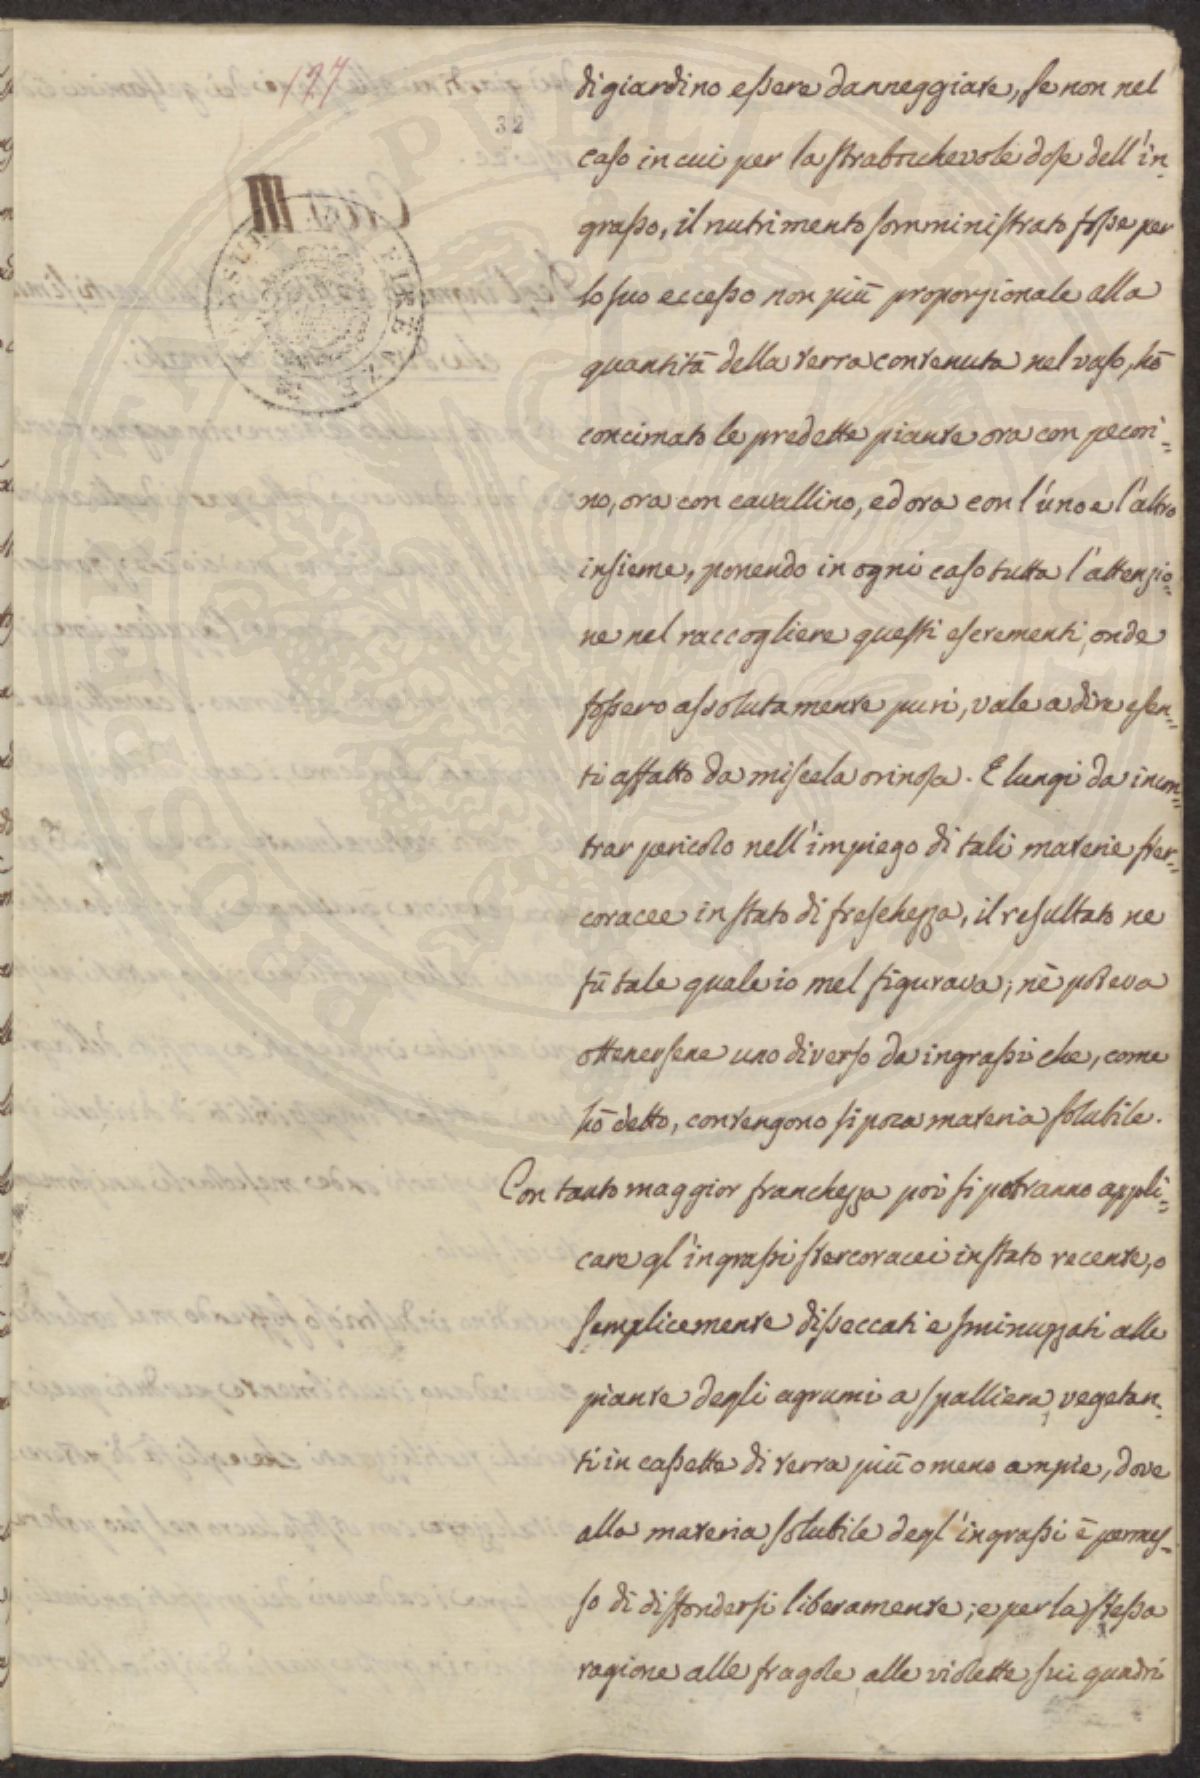 127
32
di giardino essere danneggiate, se non nel
caso in cui per la strabochevole dose dell'in=
grasso, il nutrimento somministrato fosse per
lo suo eccesso non più proporzionale alla
quantità della terra contenuta nel vaso, hò
concimato le predette piante ora con pecori=
no, ora con cavallino, ed ora con l'uno e l'altro
insieme, ponendo in ogni caso tutta l'attenzio=
ne nel raccogliere questi escrementi, onde
fossero assolutamente puri, vale a dire esen=
ti affatto da miscela orinosa. E lungi da incon=
trar pericolo nell'impiego di tali materie ster=
coracee in stato di freschezza, il resultato ne
fù tale quale io mel figurava; nè poteva
ottenersene uno diverso da ingrassi che, come
hò detto, contengono sì poca materia solubile.
Con tanto maggior franchezza poi si potranno appli=
care gl'ingrassi stercoracei in stato recente, o
semplicemente disseccati e sminuzzati alle
piante degli agrumi a spalliera, vegetan=
ti in cassette di terra più o meno ampie, dove
alla materia solubile degl'ingrassi è permes=
so di diffondersi liberamente; e per la stessa
ragione alle fragole alle violette sui quadri